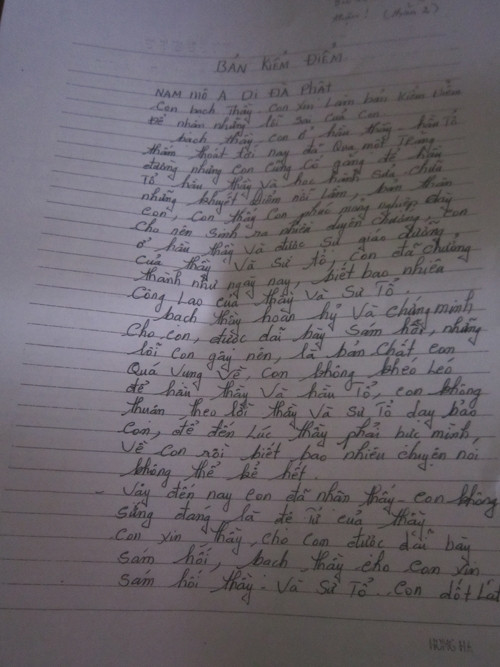 thận! (Lần 2)
BẢN KIỂM ĐIỂM
NAM MÔ A DI ĐÀ PHẬT
Con bạch thầy con xin Làm bản kiểm điểm
Để nhận những lỗi sai của con
bạch thầy con ở hầu thầy hầu Tổ
thấm thoát tới nay đã Qua một
đường nhưng con cũng cố gắng để hầu
Tổ hầu thầy và học hành sửa chữa
những khuyết điểm nói Lầm, bản thân
con, con thấy con phải mang nghiệp
cho nên sinh ra nhiều duyên chướng, con
ở hầu thầy và được sự giáo dưỡng
của thầy và sư tổ, con đã trưởng
thành như ngày nay, biết bao nhiêu
Công Lao của thầy và Sư Tổ.
bạch thầy hoan hỷ và chứng minh
cho con, được dãi bày Sám hối, những
lỗi con gây nên, là bản chất con
Quá Vụng Về con không khéo Léo
để hầu thầy và hầu Tổ, con không
thuận theo lời thầy và Sư Tổ dạy bảo
con, để đến Lúc thầy phải bực mình
Về con rồi biết bao nhiêu chuyện nói
không thể kể hết.
- Vậy đến nay con đã nhận thấy con không
Sứng đáng là đệ tử của thầy
Con xin thầy cho con được dãi bày
sám hối, bạch thầy cho con xin
sám hối thầy và Sư Tổ con dốt Lát
HONG HA